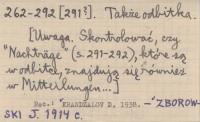 262-292 [291?]. Także odbitka.
[Uwaga. Skontrolować, czy
"Nachträge" (s. 291-292), które są
w odbitce, znajdują się również
w Mitteilungen...]
Rec.: KHANDZALOV D. 1938. - ZBOROW-
SKI J. 1914 c.